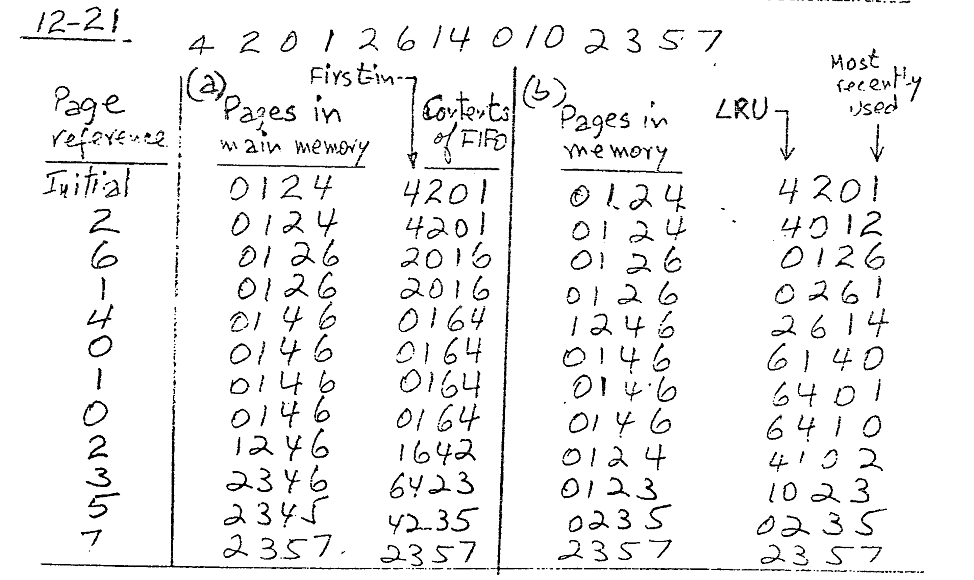 12-21
4 2 0 1 2 6 14 0 10 2 3 5 7
Page reference (a) Pages in main memory First in Contents of FIFO (b) Pages in memory LRU Most recently used
Initial 0124 4201 0124 4201
2 0124 4201 0124 4012
6 0126 2016 0126 0126
1 0126 2016 0126 0261
4 0146 0164 1246 2614
0 0146 0164 0146 6140
1 0146 0164 0146 6401
0 0146 0164 0146 6410
2 1246 1642 0124 4102
3 2346 6423 0123 1023
5 2345 4235 0235 0235
7 2357. 2357 2357 2357